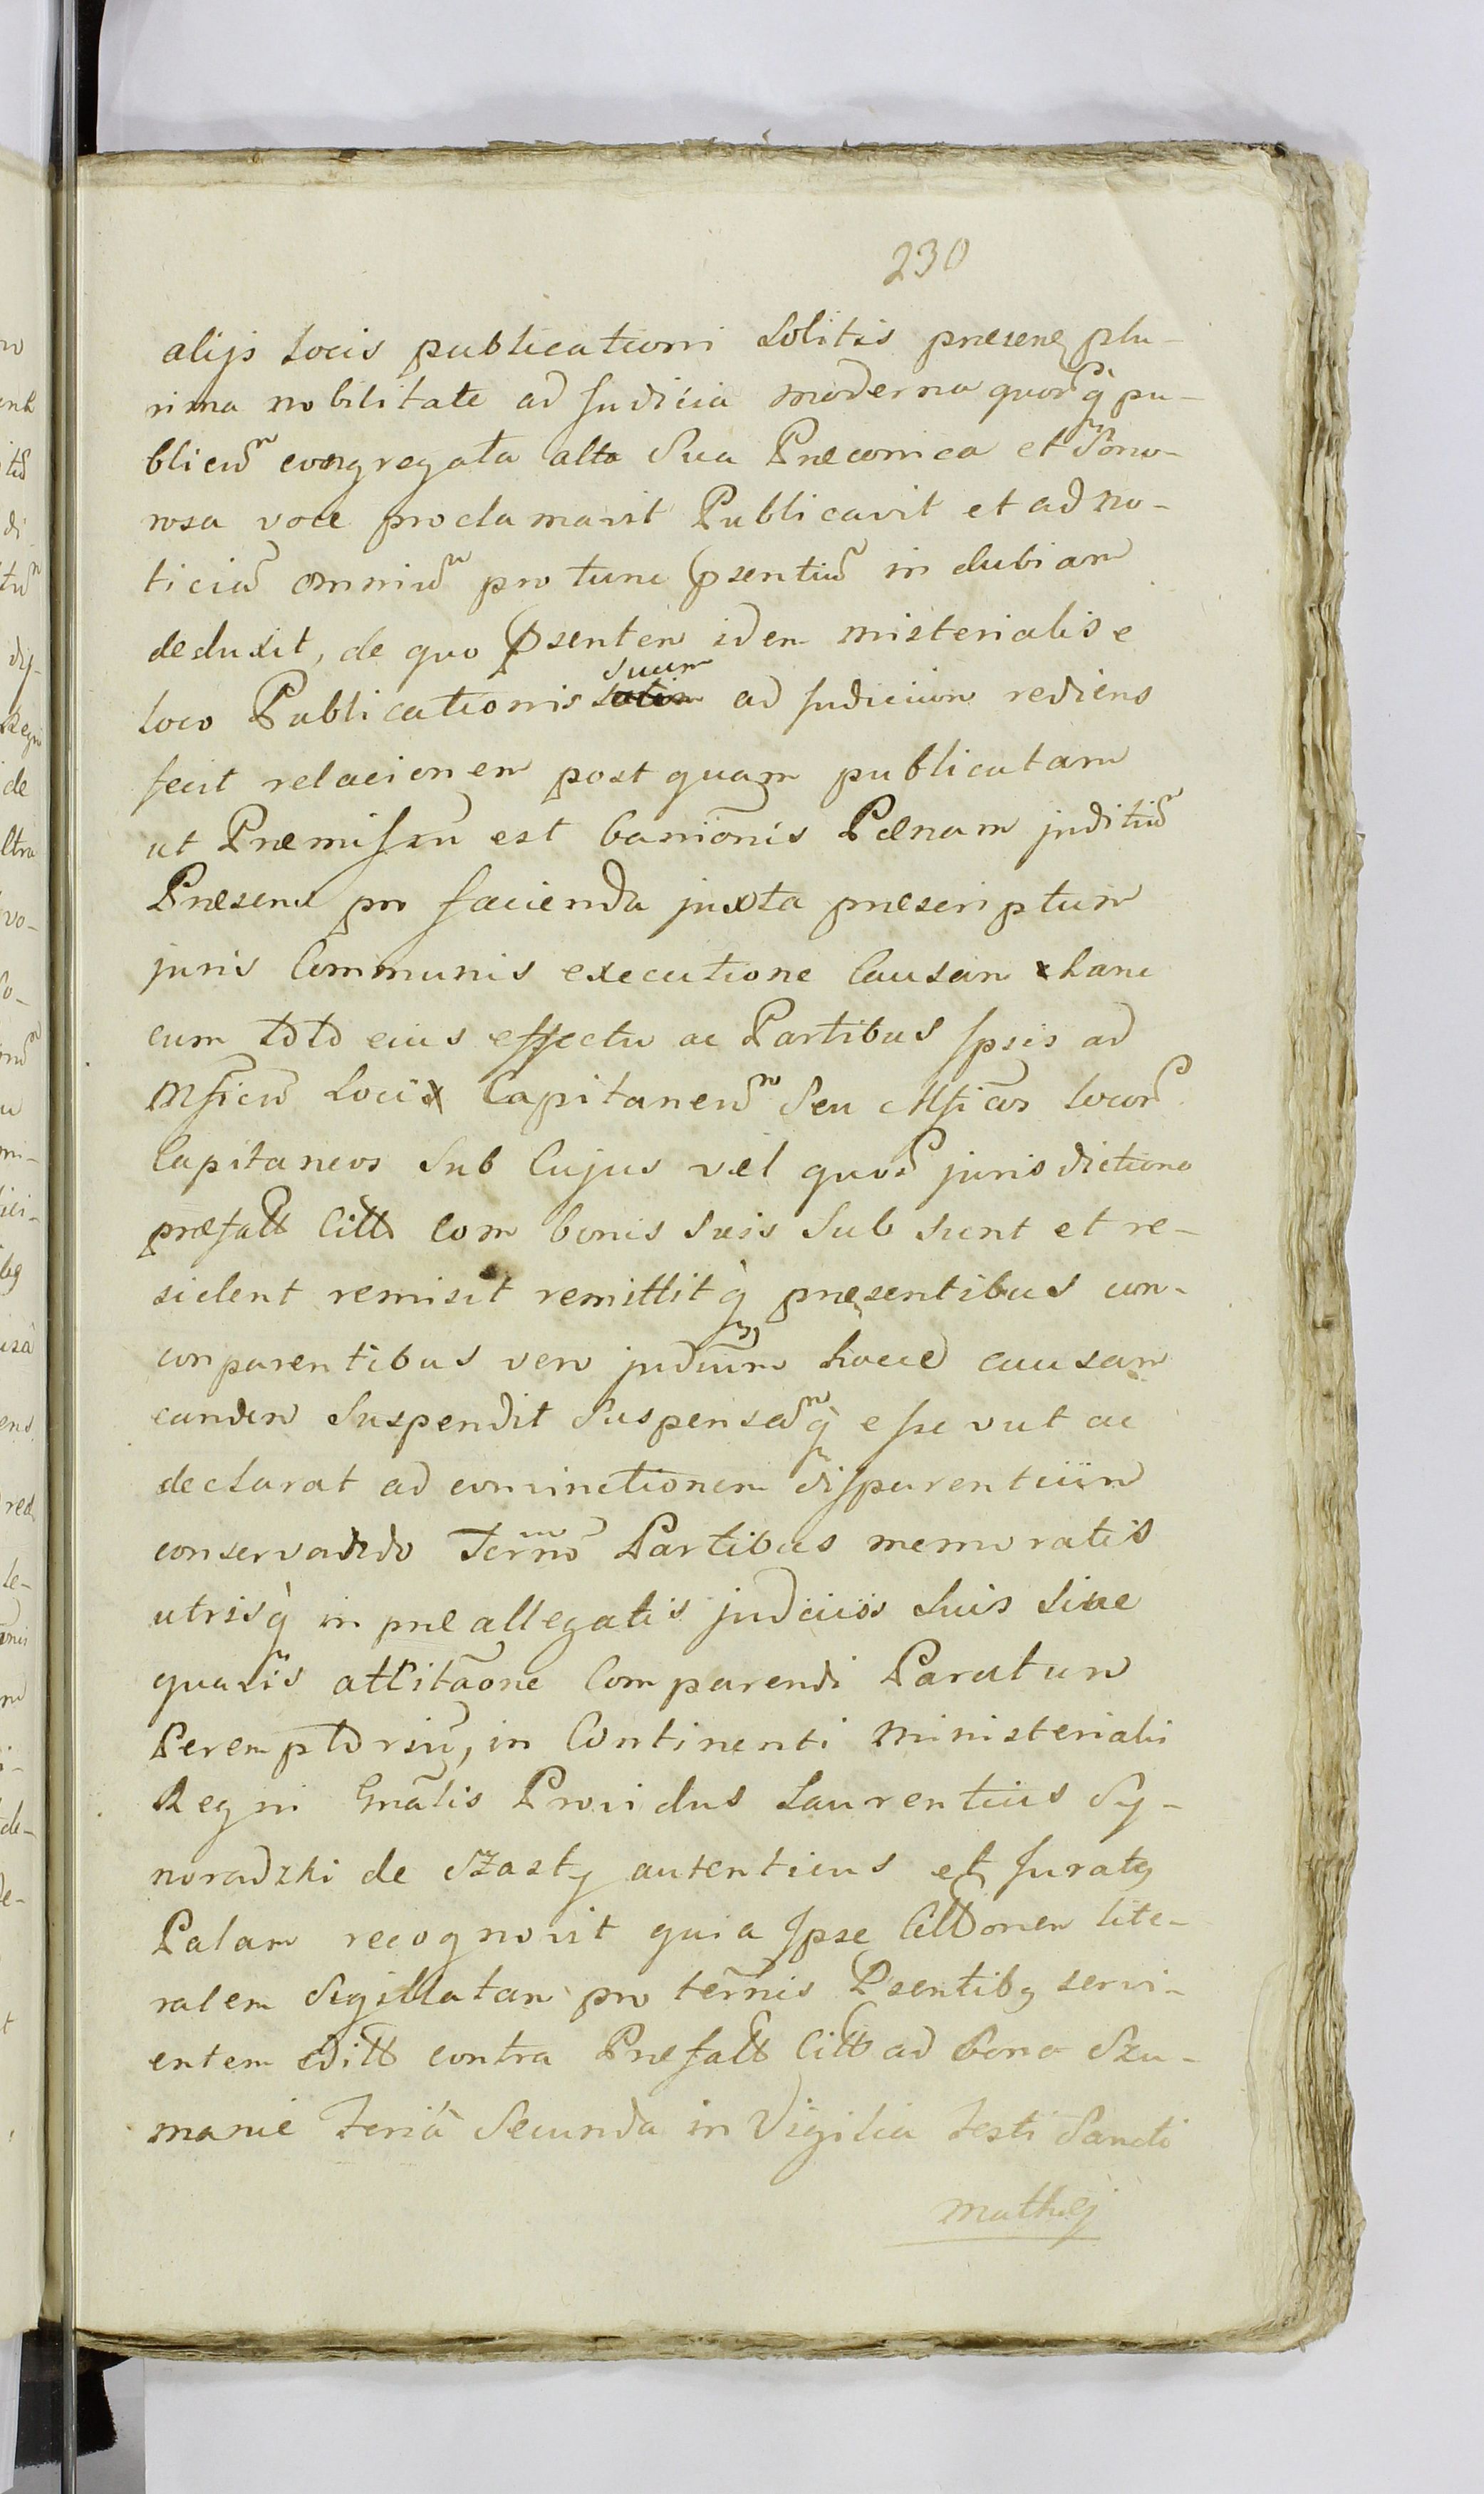 230
alijs locis publicationi solitis presene plu-
rima nobilitate ad Judicia moderna quor q̀ pu-
blicu͂ congregata alta Sua Præconica et Sono-
rosa voce proclamavit Publicavit et ad no-
ticiu͂ omniu͂ pro tunc p̃sentiu͂ in dubiam
deduxit, de quo p̃sentem idem misterialis e
loco Publicationis suum ad Judicium rediens
fecit relacionem post quam publicatam
ut Præmissu͂ est banio͂nis Pænam juditiu͂
Præsens pro facienda juxta præscriptum
juris Communis executione Causam hanc
cum toto eius effectu ac Partibus Ipsis ad
Mficu͂ Loci Capitaneu͂ Seu Mfico͂s locor͂
Capitaneos Sub Cujus vel quor͂ jurisdictione
præfatt Citt com bonis suis Sub sunt et re-
sident remisit remittit q̀ præsentibus con-
conparentibus vero judiu͂m hocce causam
eandem Suspendit Suspensa͂ q̀ esse vut ac
declarat ad convinctionem disparentium
conservando Term̃o Partibus memoratis
utrisq̀ in præallegatis judiciis suis sine
quavis attita͂one Comparendi Paratum
Peremptoriu͂, in Continenti Ministerialis
Regni Gna͂lis Providus Laurentius Sy-
noradzki de Szasty autenticus et Juratq
Palam recognovit quia Ipse Cittonem lite-
ralem Sigillatam pro ter͂nis P̃sentibq servi-
entem editt contra Præfatt Citt ad Bona Szu-
manie Feria Secunda in Vigilia Festi Sancti
Mathej